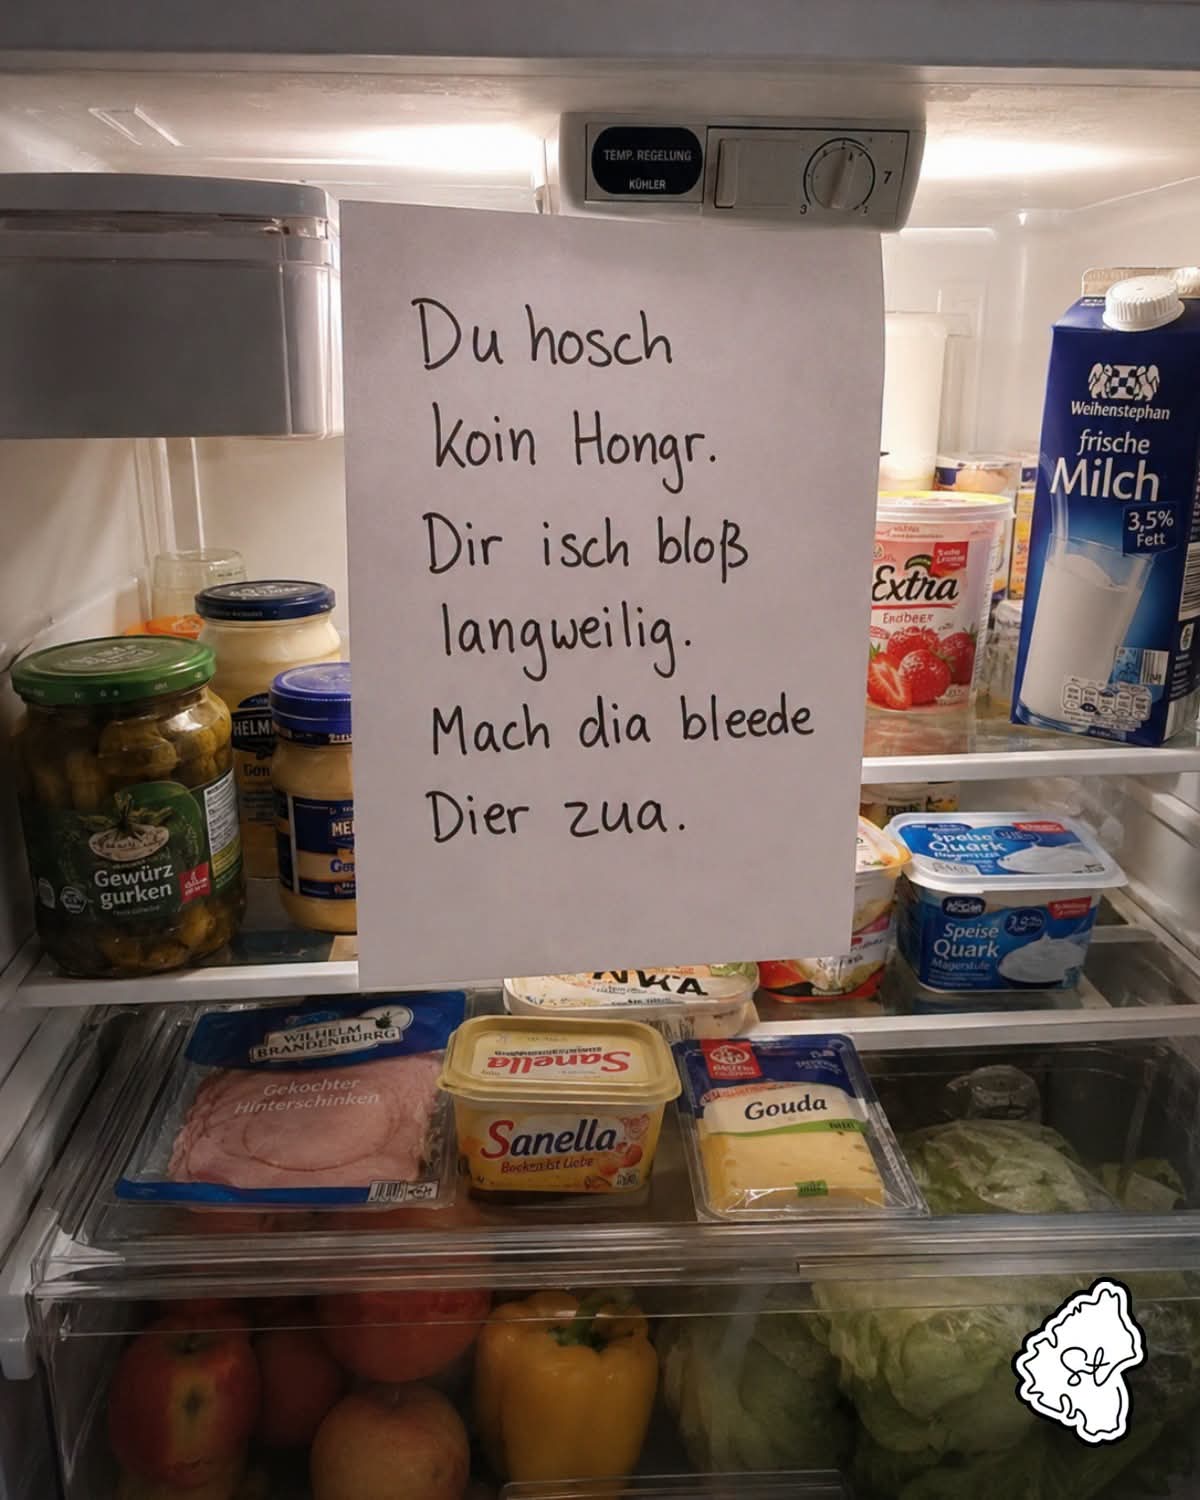 TEMP. REGELUNG
KÜHLER
7
3
Du hosch
koin Hongr.
Dir isch bloß
langweilig.
Mach dia bleede
Dier zua.
Weihenstephan
frische
Milch
3,5%
Fett
Extra
Erdbeer
HELM
Gewürz
gurken
Speise
Quark
Speise
Quark
WILHELM
BRANDENBURRG
Gekochter
Hinterschinken
Sanella
Sanella
Backen ist Liebe
Gouda
St